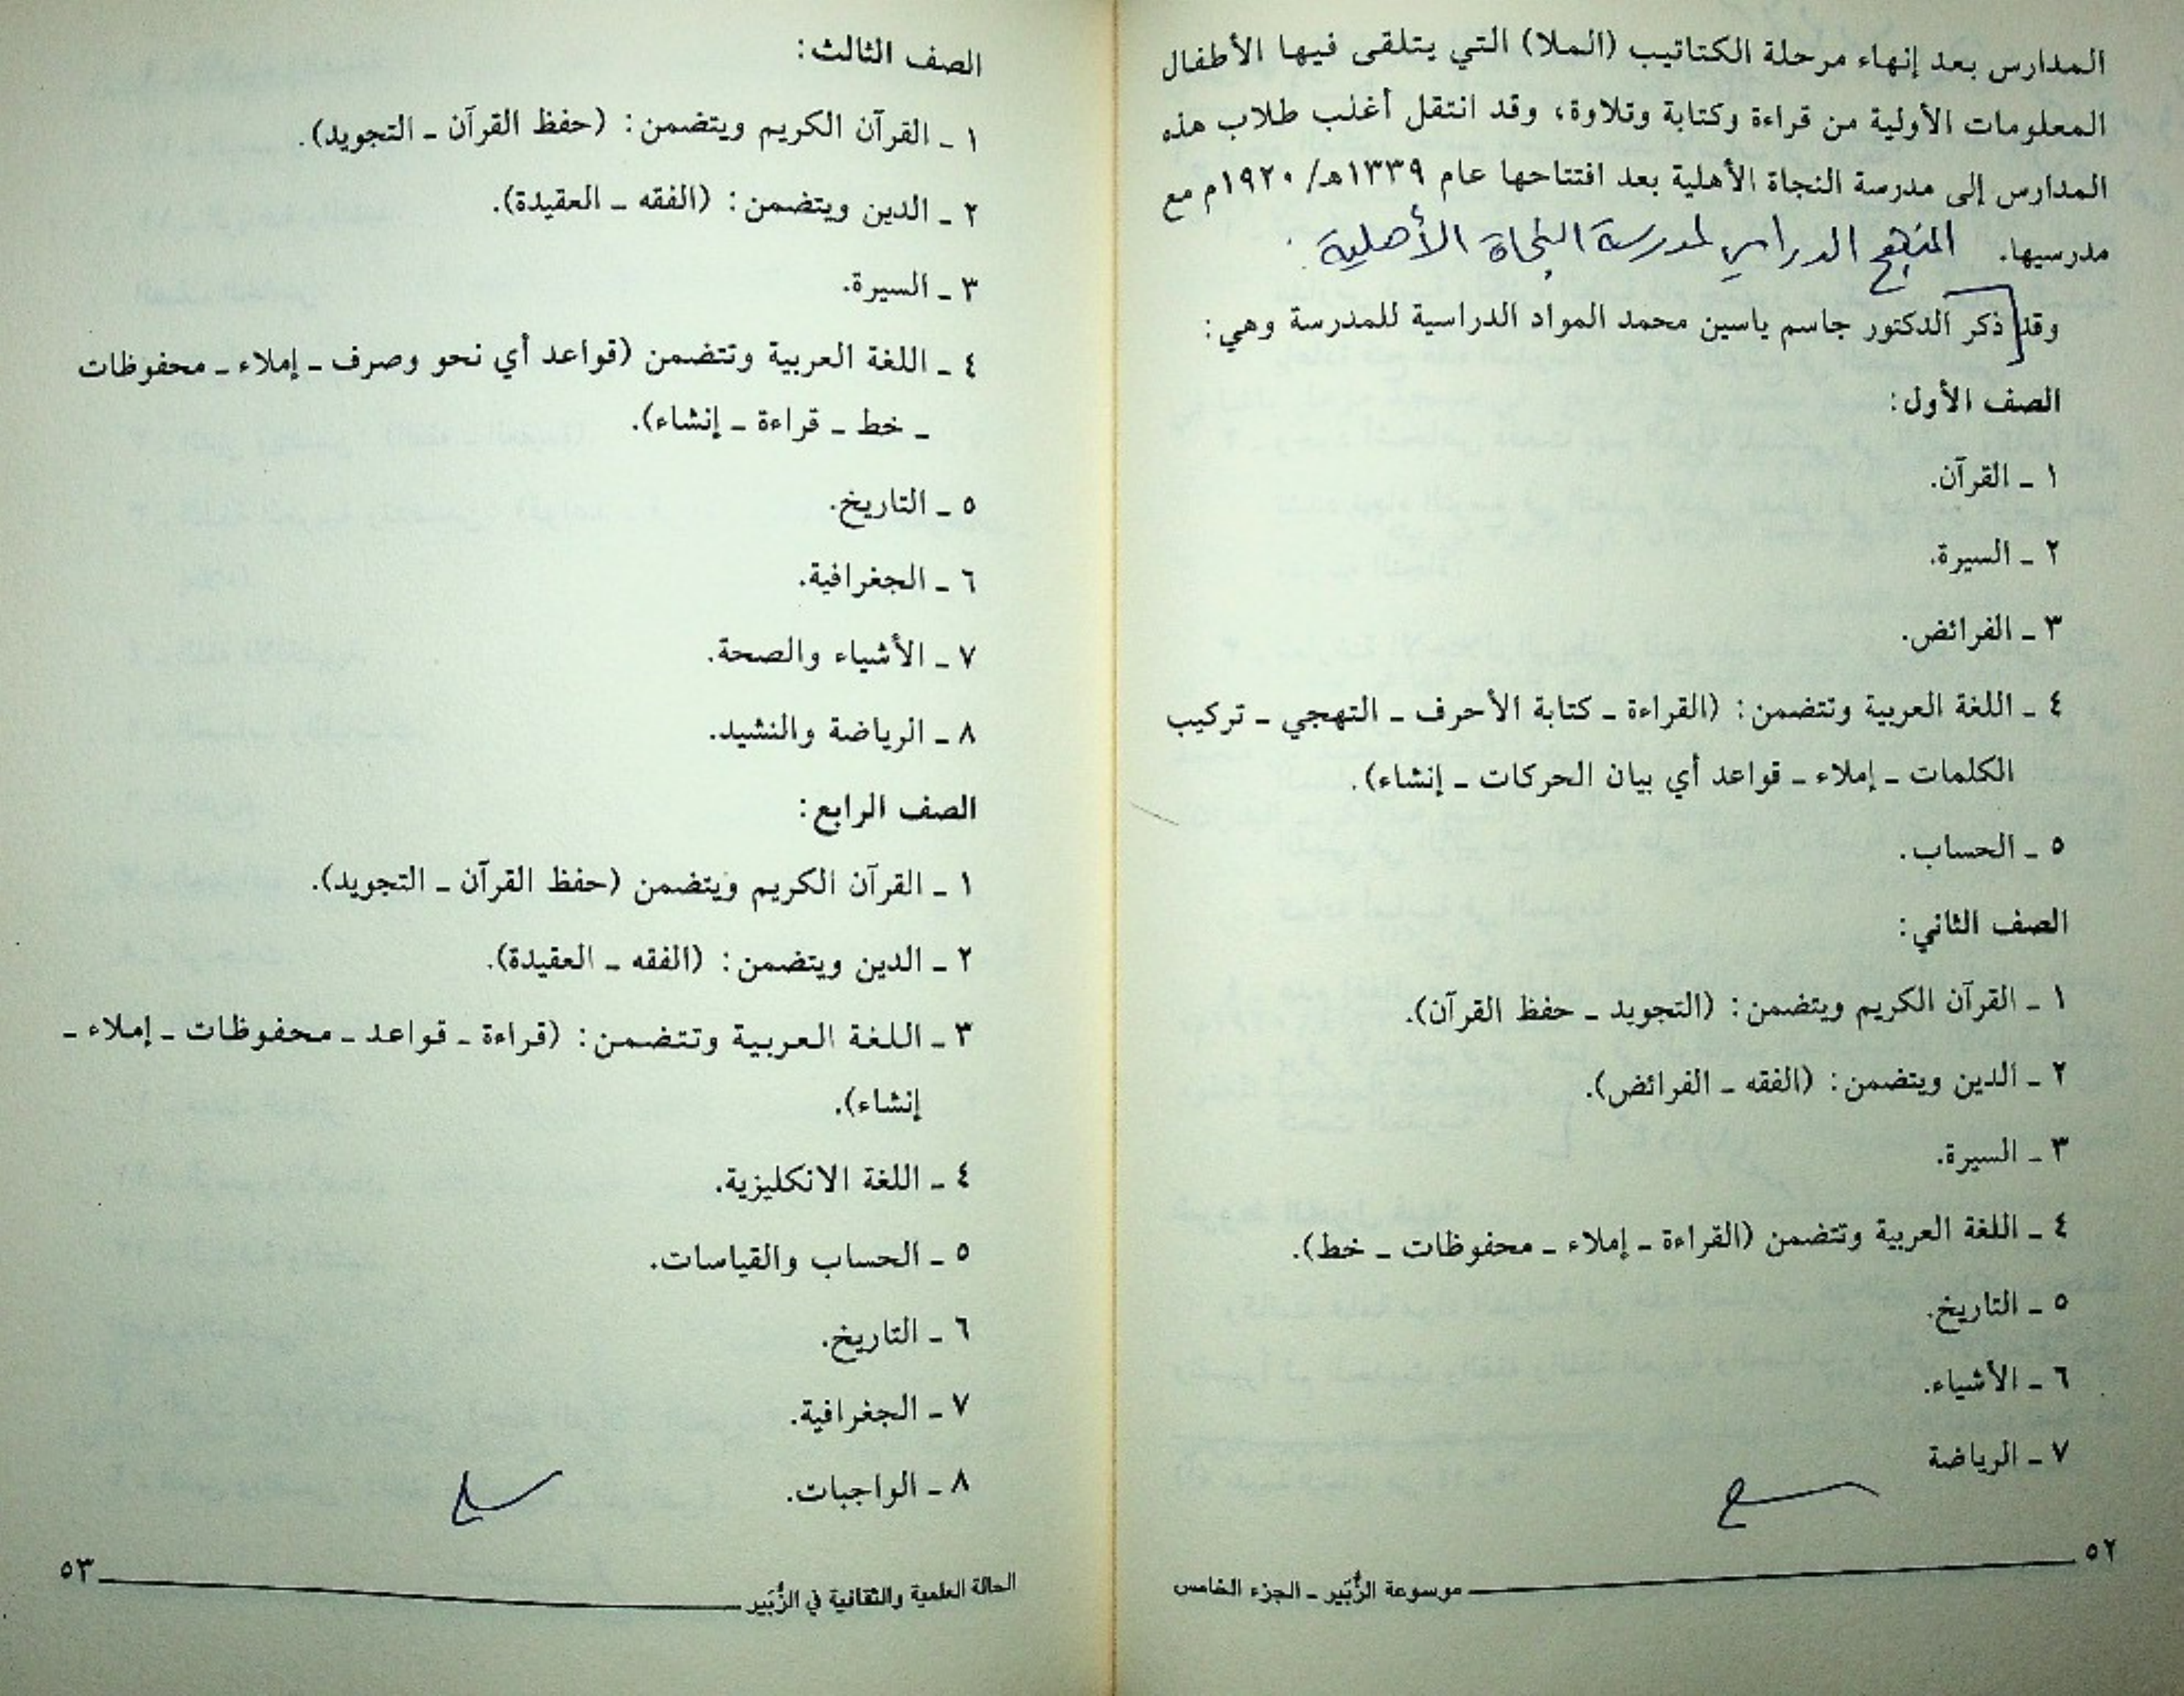 المدارس بعد إنهاء مرحلة الكتاتيب (الملا) التي يتلقى فيها الأطفال
المعلومات الأولية من قراءة وكتابة وتلاوة، وقد انتقل أغلب طلاب هذه
المدارس إلى مدرسة النجاة الأهلية بعد افتتاحها عام ١٣٣٩هـ/ ١٩٢٠م مع
مدرسيها. المنهج الدراسي لمدرسة النجاة الأهلية
وقد ذكر الدكتور جاسم ياسين محمد المواد الدراسية للمدرسة وهي:
الصف الأول:
١ ـ القرآن.
٢ ـ السيرة.
٣ ـ الفرائض.
٤ ـ اللغة العربية وتتضمن: (القراءة ـ كتابة الأحرف ـ التهجي ـ تركيب
الكلمات ـ إملاء ـ قواعد أي بيان الحركات ـ إنشاء).
٥ ـ الحساب.
الصف الثاني:
١ ـ القرآن الكريم ويتضمن: (التجويد ـ حفظ القرآن).
٢ ـ الدين ويتضمن: (الفقه ـ الفرائض).
٣ ـ السيرة.
٤ ـ اللغة العربية وتتضمن (القراءة ـ إملاء ـ محفوظات ـ خط).
٥ ـ التاريخ.
٦ ـ الأشياء.
٧ ـ الرياضة
٥٢
موسوعة الزُّبَير ـ الجزء الخامس
الصف الثالث:
١ ـ القرآن الكريم ويتضمن: (حفظ القرآن ـ التجويد).
٢ ـ الدين ويتضمن: (الفقه ـ العقيدة).
٣ ـ السيرة.
٤ ـ اللغة العربية وتتضمن (قواعد أي نحو وصرف ـ إملاء ـ محفوظات
ـ خط ـ قراءة ـ إنشاء).
٥ ـ التاريخ.
٦ ـ الجغرافية.
٧ ـ الأشياء والصحة.
٨ ـ الرياضة والنشيد.
الصف الرابع:
١ ـ القرآن الكريم ويتضمن (حفظ القرآن ـ التجويد).
٢ ـ الدين ويتضمن: (الفقه ـ العقيدة).
٣ ـ اللغة العربية وتتضمن: (قراءة ـ قواعد ـ محفوظات ـ إملاء ـ
إنشاء).
٤ ـ اللغة الانكليزية.
٥ ـ الحساب والقياسات.
٦ ـ التاريخ.
٧ ـ الجغرافية.
٨ ـ الواجبات.
الحالة العلمية والثقافية في الزُّبَير
٥٣